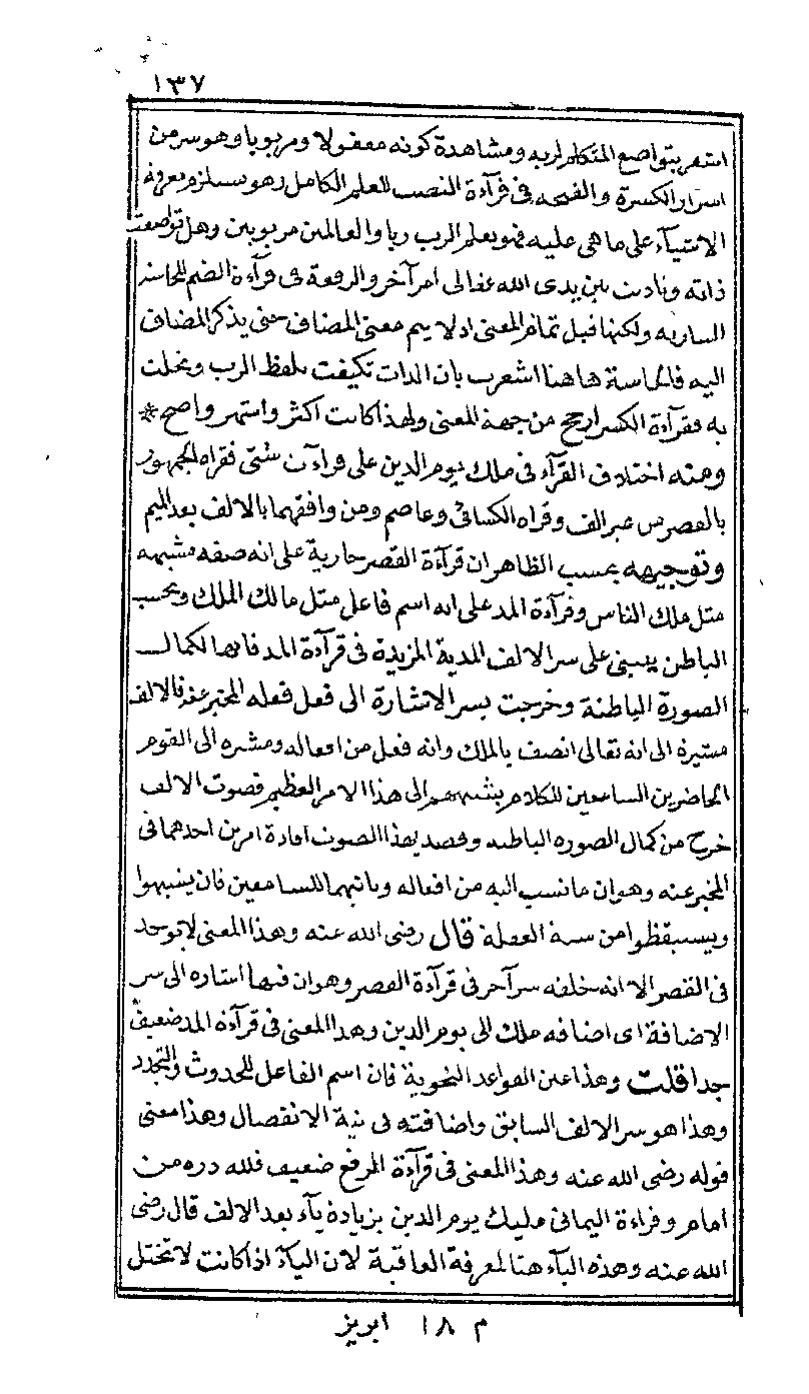 ١٣٧
اشعر بتواضع المتكلم لربه ومشاهدة كونه مفعولا ومربوبا وهو سر من
اسرار الكسرة والفتحة فى قرآءة النصب للعلم الكامل وهو يستلزم معرفة
الاشيآء على ما هى عليه فهو يعلم الرب ربا والعالمين مربوبين وهل تواضعت
ذاته وتأدبت بين يدى الله تعالى امر آخر والرفعة فى قرآءة الضم للحاسة
السارية ولكنها قبل تمام المعنى اذ لا يتم معنى المضاف حتى يذكر المضاف
اليه فالحاسة هاهنا اشعرت بان الذات تكيفت بلفظ الرب وتحلت
به فقرآءة الكسر ارجح من جهة المعنى ولهذا كانت اكثر واشهر واصح *
ومنه اختلاف القرآء فى ملك يوم الدين على قراءآت شتى فقراه الجمهور
بالقصر من غير الف وقراه الكسائى وعاصم ومن وافقهما بالالف بعد الميم
وتوجيهه بحسب الظاهر ان قرآءة القصر جارية على انه صفة مشبهة
مثل ملك الناس وقرآءة المد على انه اسم فاعل مثل مالك الملك وبحسب
الباطن ينبنى على سر الالف المدية المزيدة فى قرآءة المد فانها لكمال
الصورة الباطنة وخرجت بسر الاشارة الى فعل فعله المخبر عنه فالالف
مشيرة الى انه تعالى اتصف بالملك وانه فعل من افعاله ومشيرة الى القوم
الحاضرين السامعين للكلام بتنبيههم الى هذا الامر العظيم فصوت الالف
خرج من كمال الصورة الباطنة وقصد بهذا الصوت افادة امرين احدهما فى
المخبر عنه وهو ان ما نسب اليه من افعاله وثانيهما للسامعين فان ينتبهوا
ويستيقظوا من سنة الغفلة قال رضى الله عنه وهذا المعنى لا توجد
فى القصر الا انه يخلفه سر آخر فى قرآءة القصر وهو ان فيها اشارة الى سر
الاضافة اى اضافة ملك الى يوم الدين وهذا المعنى فى قرآءة المد ضعيف
جدا قلت وهذا عين القواعد النحوية فان اسم الفاعل للحدوث والتجدد
وهذا هو سر الالف السابق واضافته فى نية الانفصال وهذا معنى
قوله رضى الله عنه وهذا المعنى فى قرآءة الرفع ضعيف فلله دره من
امام وقراءة اليمانى مليك يوم الدين بزيادة يآء بعد الالف قال رضى
الله عنه وهذه اليآء هنا لمعرفة العاقبة لان اليآء اذا كانت لا تختل
م ١٨ ابريز